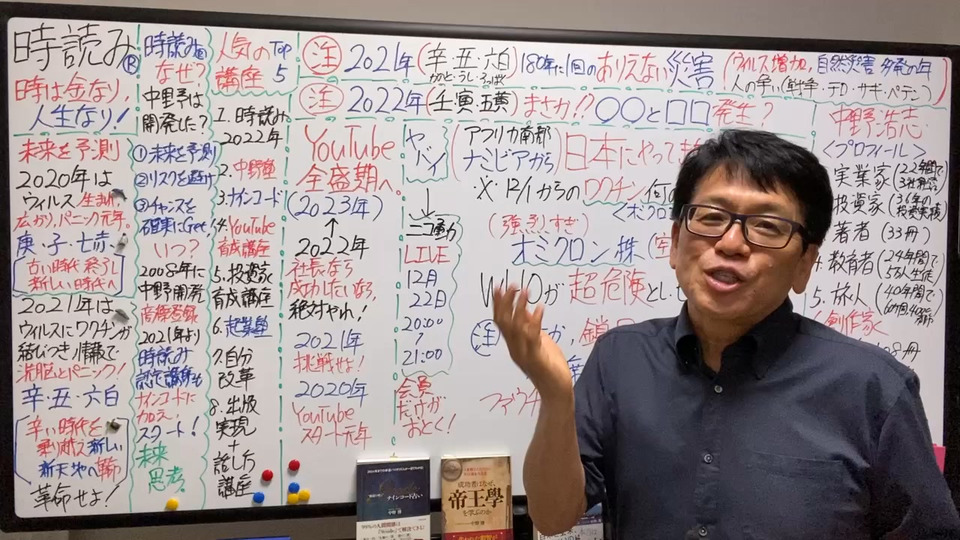 時読み®
時は金なり、
人生なり!
未来を予測
2020年は
ウィルス生まれ、
広がり、パニック元年。
庚・子・七赤、
古い時代終了し
新しい時代へ
2021年は
ウィルスにワクチンが
結びつき
洗脳とパニック!
辛・丑・六白
辛い時代を
乗り越え新しい
新天地へ
革命せよ!
時読み®
なぜ?
中野予は
開発した?
①未来を予測
②リスクを避け
③チャンスを
確実にGet!
いつ?
2008年に
中野開発
商標登録
2021年より
時読み
認定講師も
ナインコードに
加え、
スタート!
未来
思考。
人気のTop
講座 5
1. 時読み
2022年
2. 中野塾
3. ナインコード
4. YouTube
育成講座
5. 投資家
育成講座
6. 起業塾
7. 自分
改革
8. 出版
実現
+
話し方
講座
注 2021年(辛・丑・六白)180年に1回のありえない災害
(ウィルス増加、自然災害 多発の年
人の争い(戦争・テロ・サギ・ペテン)
注 2022年(壬・寅・五黄)まさか!!○○と□□発生?
YouTube
全盛期へ。
(2023年)
↑
2022年
社長なら
成功したいなら、
絶対やれ!
2021年
挑戦せよ!
2020年
YouTube
スタート元年
ヤバイ
↓
ニコ動
LIVE
12月
22日
20:00
21:00
会員
だけが
おとく!
アフリカ南部
ナミビアから
日本にやって
※12/1からのワクチン何
(強烈すぎ)
オミクロン株
WHOが超危険とし
注
ファウチ
中野浩志
<プロフィール>
実業家(22年間で
投資家(36年の
著者(33冊)
教育者(29年間で
5万人生徒
5. 旅人(40年間で
創作家
ナインコード占い
中野 博
成功者はなぜ、
帝王學
を学ぶのか
中野 博